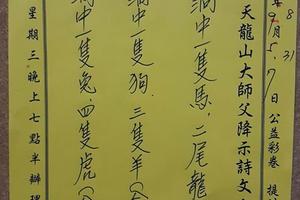 8
31
9月5.7日公益彩卷提
天龍山大師父降示詩文
中一隻馬、二尾龍
中一隻狗、三隻羊
中一隻兔、四隻虎
星期三晚上七點半辦理